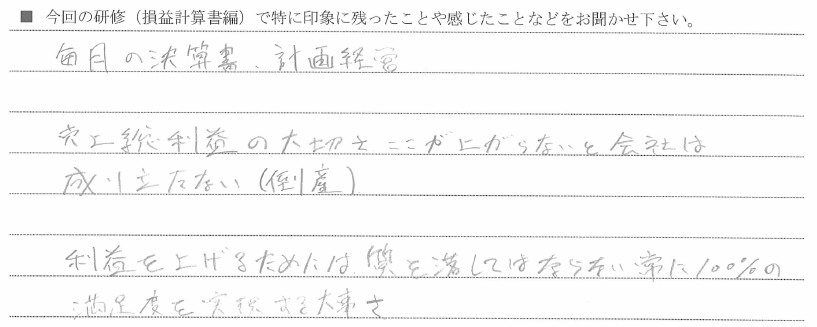 ■ 今回の研修（損益計算書編）で特に印象に残ったことや感じたことなどをお聞かせ下さい。
毎月の決算書、計画経営
売上総利益の大切さ ここが上がらないと会社は
成り立たない（倒産）
利益を上げるためには、質を落してはならない常に100%の
満足度を実現する大事さ